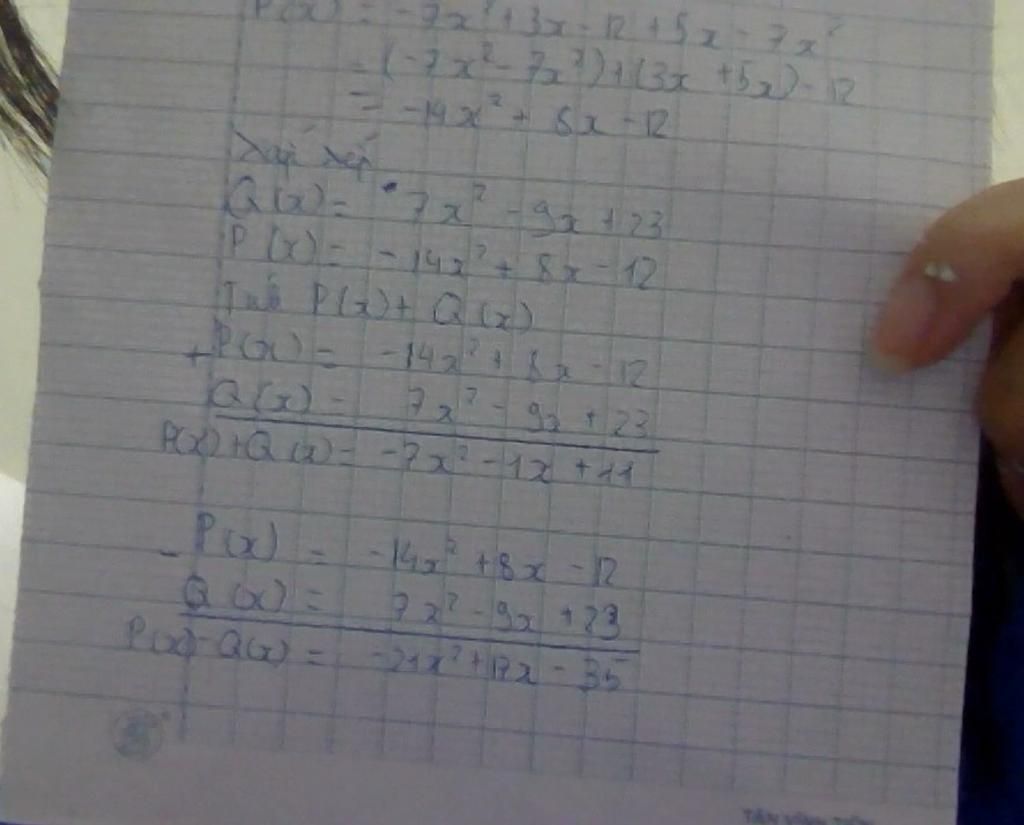 P(x) = -7x² + 3x - 12 + 5x - 7x²
= (-7x² - 7x²) + (3x + 5x) - 12
= -14x² + 8x - 12
Sắp xếp
Q(x) = 7x² - 9x + 23
P(x) = -14x² + 8x - 12
P(x) + Q(x)
+ P(x) = -14x² + 8x - 12
Q(x) = 7x² - 9x + 23
P(x) + Q(x) = -7x² - 1x + 11
- P(x) = -14x² + 8x - 12
Q(x) = 7x² - 9x + 23
P(x) - Q(x) = -21x² + 17x - 35